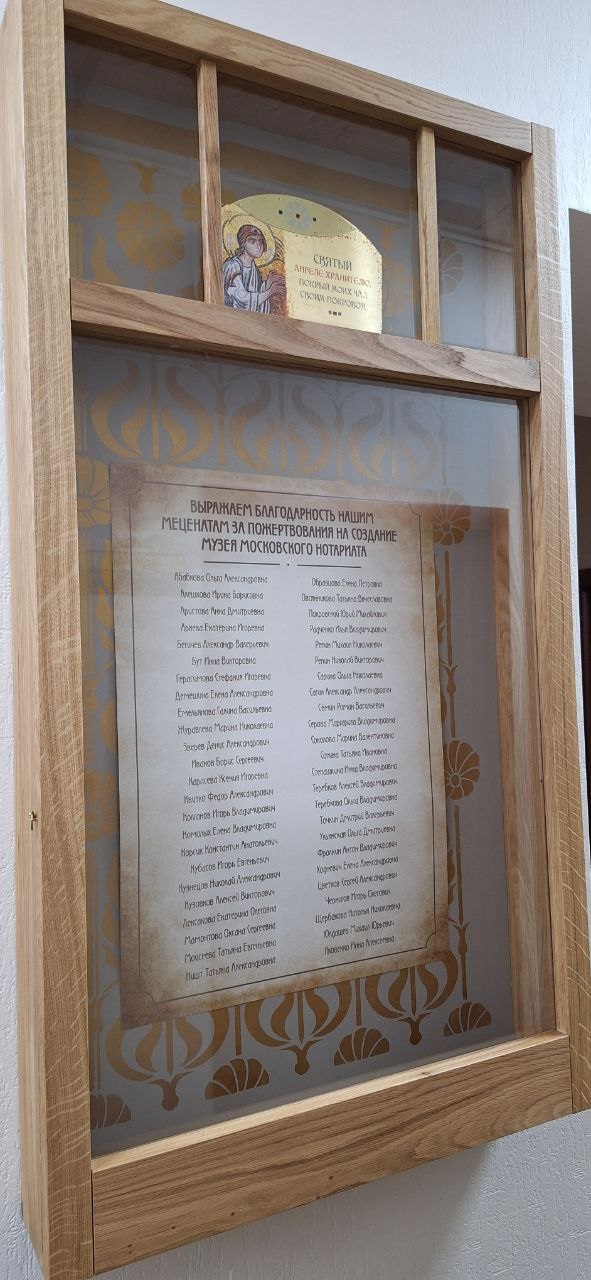 СВЯТЫЙ
АНГЕЛЕ ХРАНИТЕЛЮ,
ПОКРЫЙ МОИХ ЧАД
СВОИМ ПОКРОВОМ.
ВЫРАЖАЕМ БЛАГОДАРНОСТЬ НАШИМ
МЕЦЕНАТАМ ЗА ПОЖЕРТВОВАНИЯ НА СОЗДАНИЕ
МУЗЕЯ МОСКОВСКОГО НОТАРИАТА
Абабкова Ольга Александровна
Алешкова Ирина Борисовна
Аристова Анна Дмитриевна
Арнева Екатерина Игоревна
Бегичев Александр Валерьевич
Бут Инна Викторовна
Герасимова Стефания Игоревна
Демешкина Елена Александровна
Емельянова Галина Васильевна
Журавлева Марина Николаевна
Зверев Денис Александрович
Иванов Борис Сергеевич
Карасева Ксения Игоревна
Квитко Федор Александрович
Колганов Игорь Владимирович
Комолых Елена Владимировна
Корсик Константин Анатольевич
Кубасов Игорь Евгеньевич
Кузнецов Николай Александрович
Кузовков Алексей Викторович
Лексакова Екатерина Олеговна
Мамонтова Оксана Сергеевна
Моисеева Татьяна Евгеньевна
Ништ Татьяна Александровна
Образцова Елена Петровна
Овсянникова Татьяна Вячеславовна
Покровский Юрий Михайлович
Радченко Илья Владимирович
Репин Михаил Николаевич
Репин Николай Викторович
Савина Ольга Николаевна
Сагин Александр Александрович
Семин Роман Васильевич
Серова Маргарита Владимировна
Соколова Марина Валентиновна
Сотина Татьяна Ивановна
Степашкина Инна Владимировна
Теребков Алексей Владимирович
Теребкова Ольга Владимировна
Точкин Дмитрий Валерьевич
Ульянская Ольга Дмитриевна
Фролкин Антон Владимирович
Ходневич Елена Александровна
Цветков Сергей Александрович
Чернигов Игорь Олегович
Щербакова Наталья Николаевна
Юпрашев Михаил Юрьевич
Яковенко Инна Алексеевна